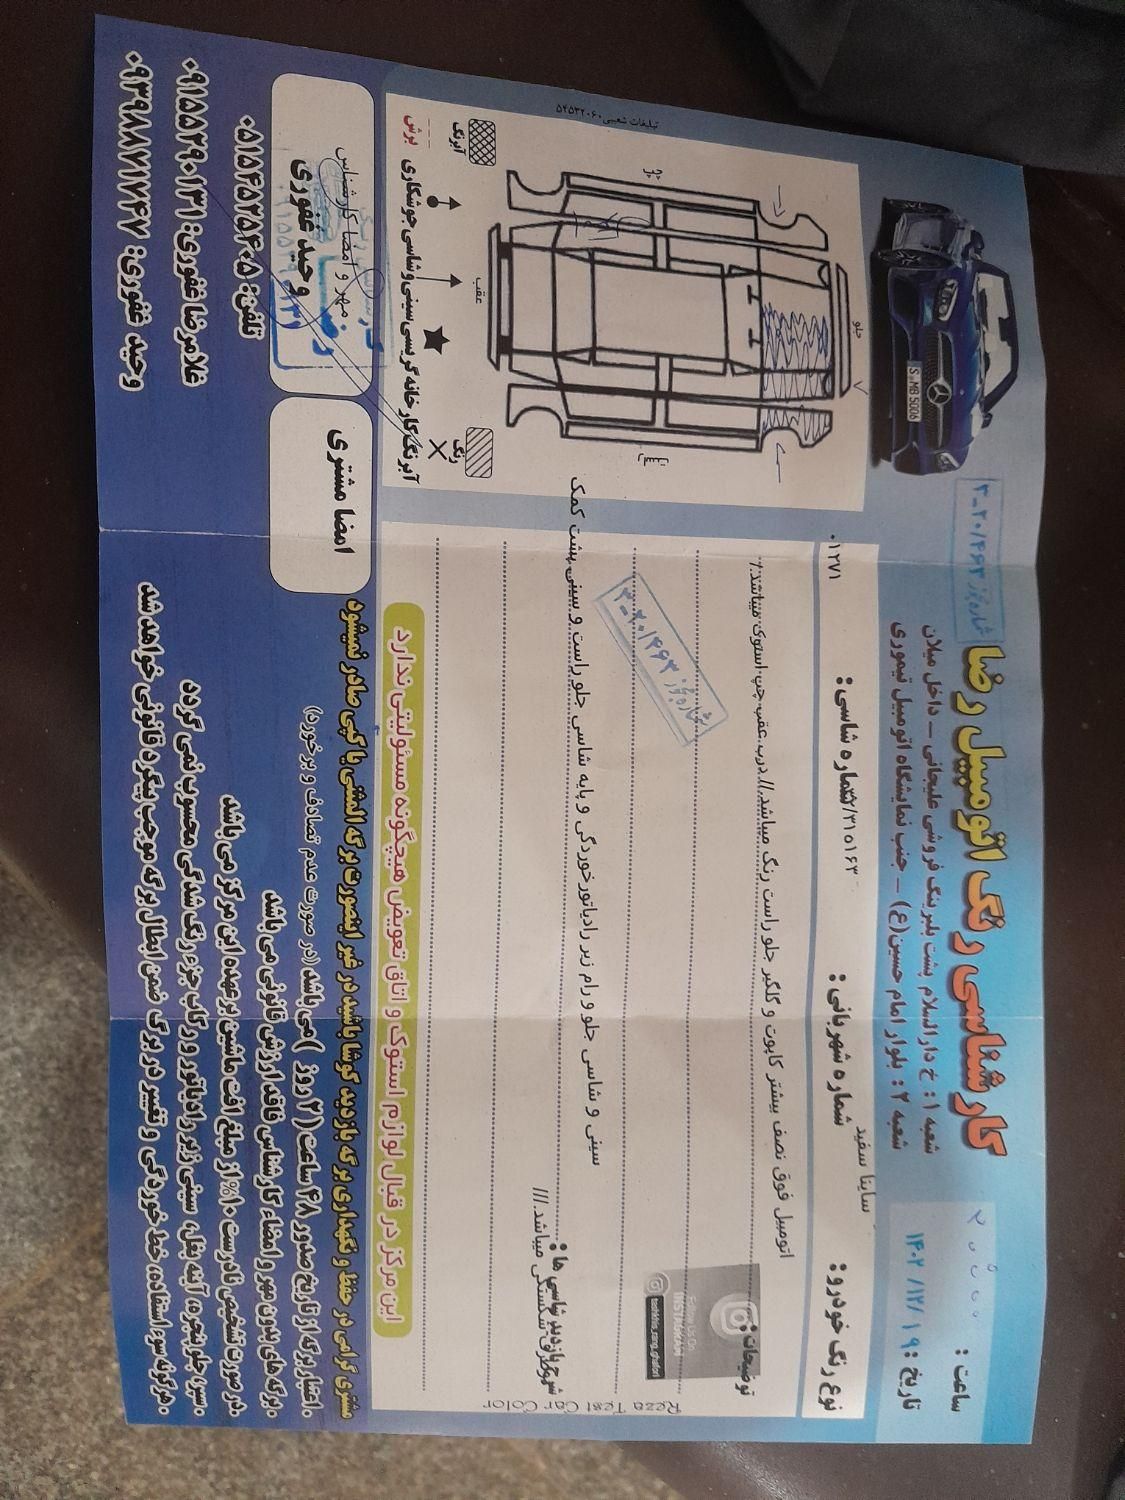 کارشناسی رنگ اتومبیل رضا
شماره مجوز ۲۰/۴۶۳-۳
شعبه ۱: خ دارالسلام پشت بلبرینگ فروشی علیجانی - داخل میلان
شعبه ۲: بلوار امام حسین(ع) - جنب نمایشگاه اتومبیل تیموری
ساعت :
تاریخ : ۱۴۰۲/۱۲/۱۹
S MB 5006
ساینا سفید
نوع رنگ خودرو :
شماره شهربانی :
شماره شاسی :
۰۱۲۷۱
توضیحات :
اتومبیل فوق نصف بیشتر کاپوت و گلگیر جلو راست رنگ میباشد // درب عقب چپ استوی میباشد /
شماره مجوز ۲۰/۴۶۳-۳
بازدید شاسی ها :
سینی و شاسی جلو و رام زیر رادیاتور خوردگی و پایه شاسی جلو راست و سینی پشت کمک
شکستگی میباشد ///
Follow Us On
INSTAGRAM
Reza Test Car Color
این مرکز در قبال لوازم استوک و اتاق تعویض هیچگونه مسئولیتی ندارد
جلو
چپ
راست
عقب
رنگ
آبرنگ
آبرنگ کارخانه گریسی سینی و شاسی جوشکاری
برش
تبلیغات شعیبی ۵۲۵۳۲۰۶۰
مشتری گرامی در حفظ و نگهداری برگه بازدید کوشا باشید در غیر اینصورت برگه المثنی یا کپی صادر نمیشود
.اعتبار برگه از تاریخ صدور ۴۸ ساعت (۲ روز ) می باشد (در صورت عدم تصادف و برخورد)
.برگه های بدون مهر و امضاء کارشناس فاقد ارزش قانونی می باشد
.در صورت تشخیص نادرست ۱۰٪ از مبلغ افت ماشین بر عهده این مرکز می باشد
.سپر، جلو پنجره، آینه بغل، سینی زیر رادیاتور و رکاب جزء رنگ شدگی محسوب نمی گردد
.هرگونه سوء استفاده، خط خوردگی و تغییر در برگ ضمن ابطال برگه موجب پیگرد قانونی خواهد شد
امضا مشتری
مهر و امضا کارشناس
وحید غفوری
تلفن: ۰۵۱۵۴۵۳۵۴۰۵
غلامرضا غفوری: ۰۹۱۵۵۳۹۰۱۳۱
وحید غفوری: ۰۹۳۹۸۸۷۱۷۴۶۷